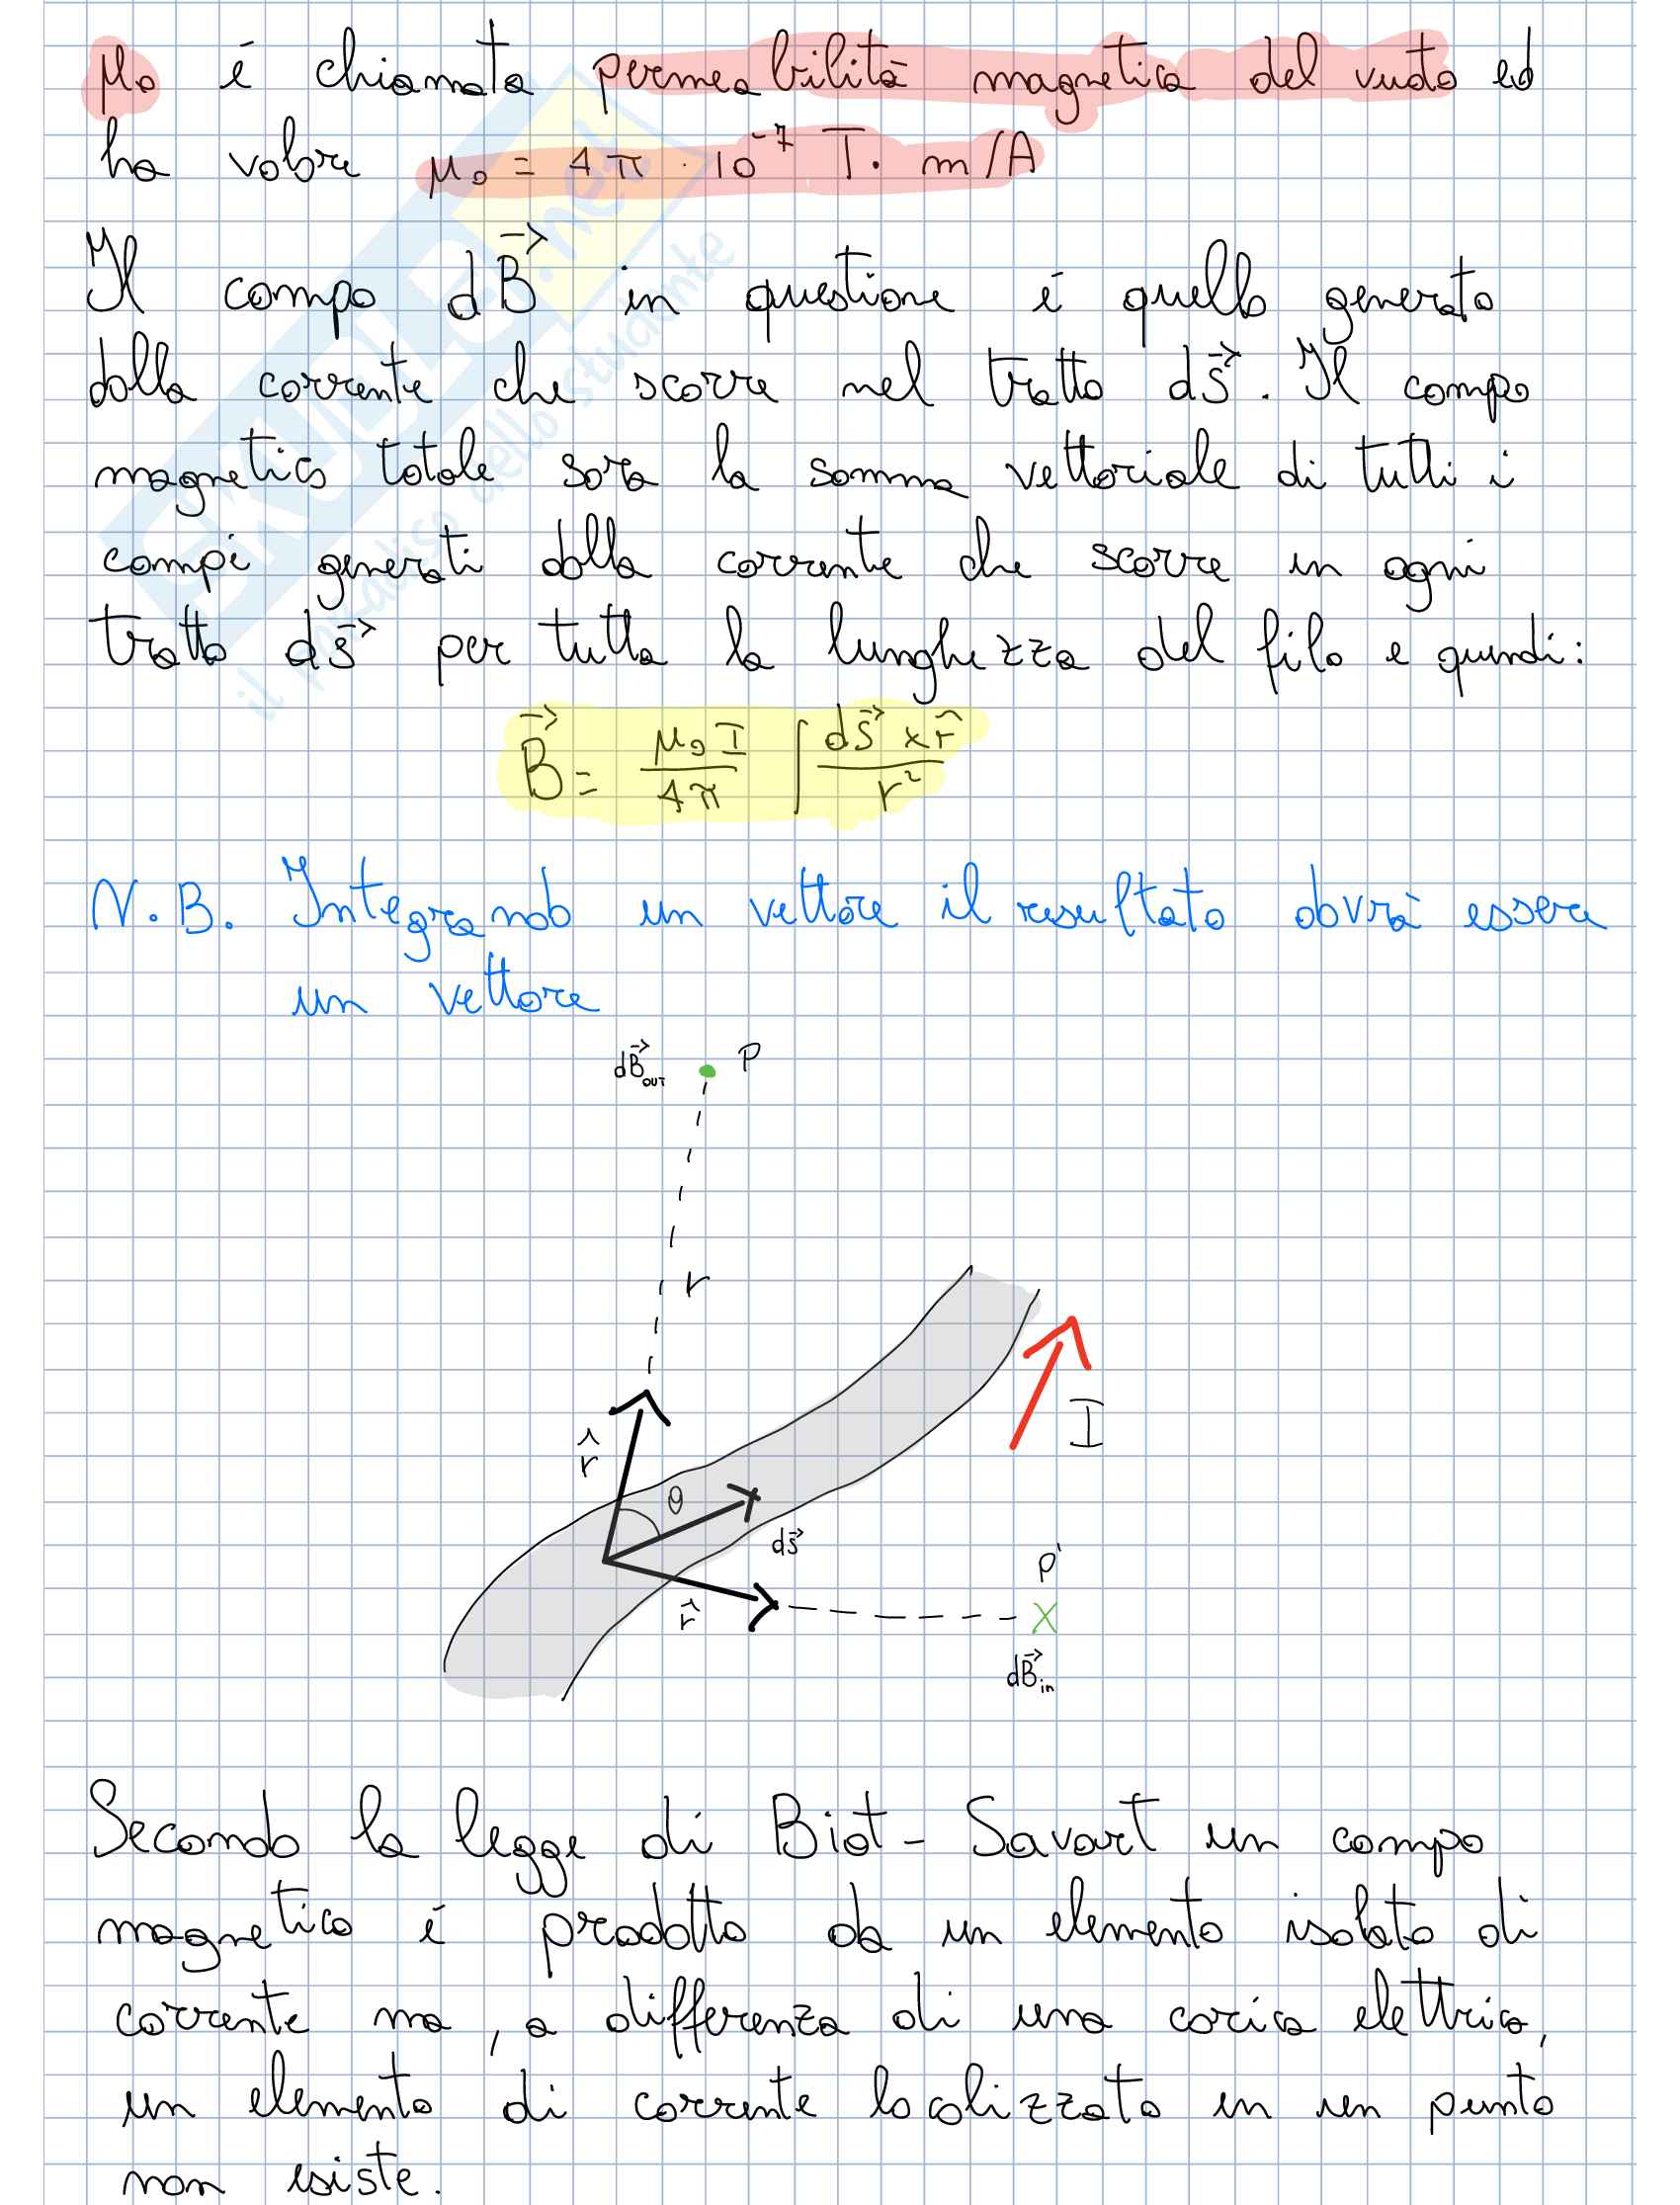 μ₀ é chiamata permeabilità magnetica del vuoto ed
ha valore μ₀ = 4π · 10⁻⁷ T· m/A
Il campo dB⃗ in questione é quello generato
dalla corrente che scorre nel tratto ds⃗. Il campo
magnetico totale sara la somma vettoriale di tutti i
campi generati dalla corrente che scorre in ogni
tratto ds⃗ per tutta la lunghezza del filo e quindi:
B⃗ = μ₀ I / 4π ∫ ds⃗ × r̂ / r²
N.B. Integrando un vettore il resultato dovrà essere
un vettore
dB⃗OUT P
r
r̂
θ
I
ds⃗
P'
r̂
dB⃗in
Secondo la legge di Biot - Savart un campo
magnetico é prodotto da un elemento isolato di
corrente ma, a differenza di una carica elettrica,
un elemento di corrente localizzato in un punto
non esiste.
SKUOLA.net
il paradiso dello studente